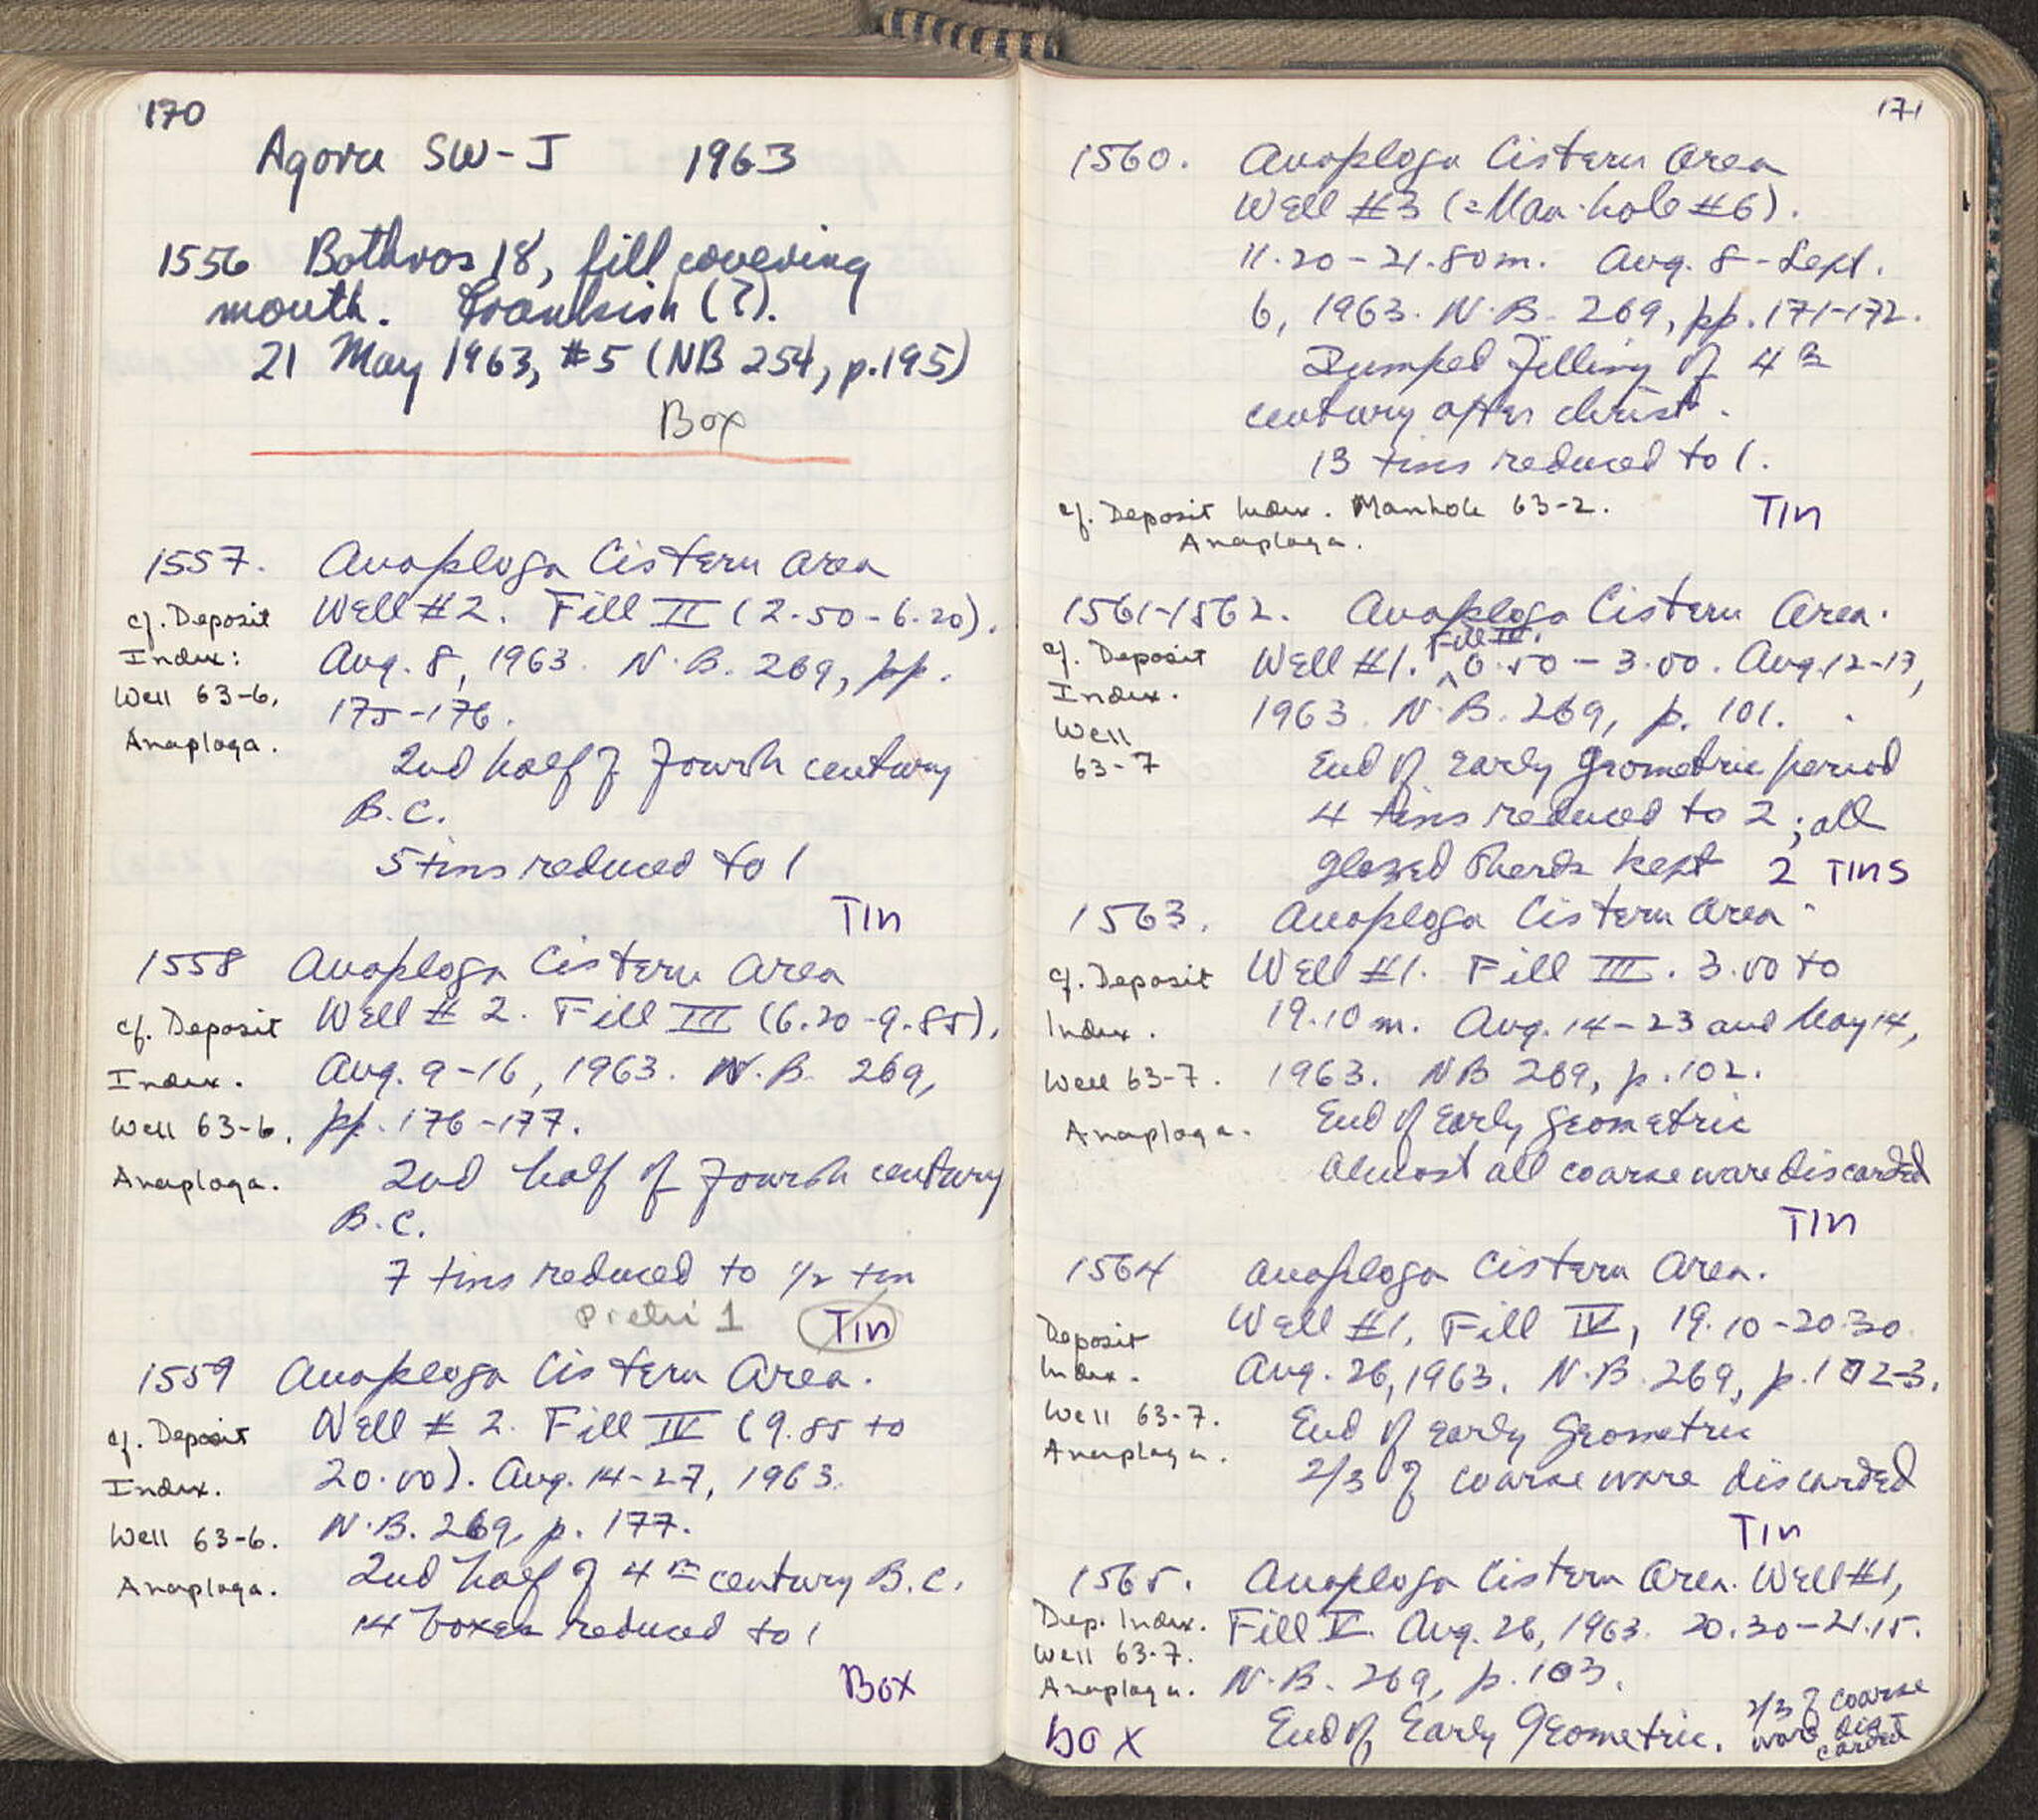 170
Agora SW-J 1963
1556 Bothros 18, fill covering
mouth. Frankish (?).
21 May 1963, #5 (NB 254, p.195)
Box
1557. Anaploga Cistern Area
Well #2. Fill II (2.50-6.20).
Aug. 8, 1963. N.B. 269, pp.
175-176.
2nd half of fourth century
B.C.
5 tins reduced to 1
Tin
cf. Deposit
Index:
Well 63-6.
Anaploga.
1558 Anaploga Cistern Area
Well # 2. Fill III (6.20-9.85).
Aug. 9-16, 1963. N.B. 269,
pp. 176-177.
2nd half of fourth century
B.C.
7 tins reduced to 1/2 tin
Pietri 1 Tin
cf. Deposit
Index.
Well 63-6.
Anaploga.
1559 Anaploga Cistern Area.
Well # 2. Fill IV (9.85 to
20.00). Aug. 14-27, 1963.
N.B. 269, p. 177.
2nd half of 4th century B.C.
14 boxes reduced to 1
Box
cf. Deposit
Index.
Well 63-6.
Anaploga.
171
1560. Anaploga Cistern Area
Well #3 (=Man-hole #6).
11.20-21.80m. Aug. 8-Sept.
6, 1963. N.B. 269, pp. 171-172.
Dumped filling of 4th
century after Christ.
13 tins reduced to 1.
cf. Deposit Index. Manhole 63-2.
Anaploga.
Tin
1561-1562. Anaploga Cistern Area.
Well #1. Fill III. 0.50-3.00. Aug. 12-13,
1963. N.B. 269, p. 101.
End of Early Geometric period
4 tins reduced to 2; all
glazed sherds kept 2 Tins
cf. Deposit
Index.
Well
63-7
1563. Anaploga Cistern Area.
Well #1. Fill III. 3.00 to
19.10m. Aug. 14-23 and May 14,
1963. NB 269, p. 102.
End of Early Geometric
Almost all coarse ware discarded
Tin
cf. Deposit
Index.
Well 63-7.
Anaploga.
1564 Anaploga Cistern Area.
Well #1, Fill IV, 19.10-20.30
Aug. 26, 1963. N.B. 269, p. 102-3.
End of Early Geometric
2/3 of coarse ware discarded
Tin
Deposit
Index.
Well 63-7.
Anaploga.
1565. Anaploga Cistern Area. Well #1,
Fill V. Aug. 26, 1963. 20.30-21.15.
N.B. 269, p. 103.
End of Early Geometric. 2/3 of coarse
ware dis
carded
Dep. Index.
Well 63-7.
Anaploga.
box